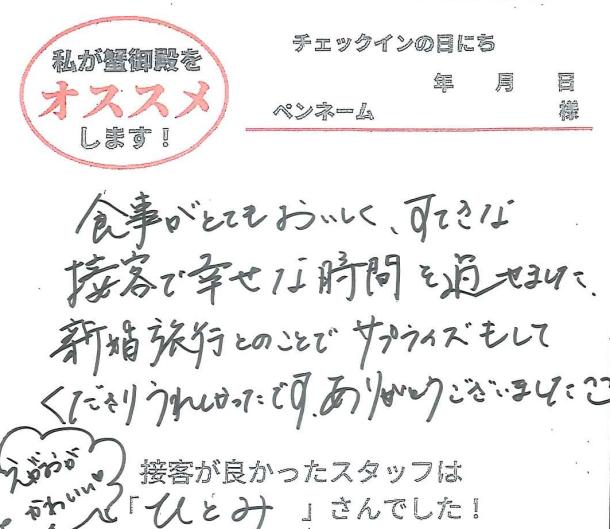 私が蟹御殿を
オススメ
します！
チェックインの日にち
年 月 日
ペンネーム 様
食事がとてもおいしく、すてきな
接客で幸せな時間を過せました、
新婚旅行とのことで サプライズもして
くださりうれしかったです、ありがとうございました
えがおが
かわいい♥
接客が良かったスタッフは
「ひとみ」さんでした！